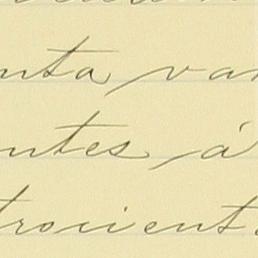 nta va
ntes á
trocient